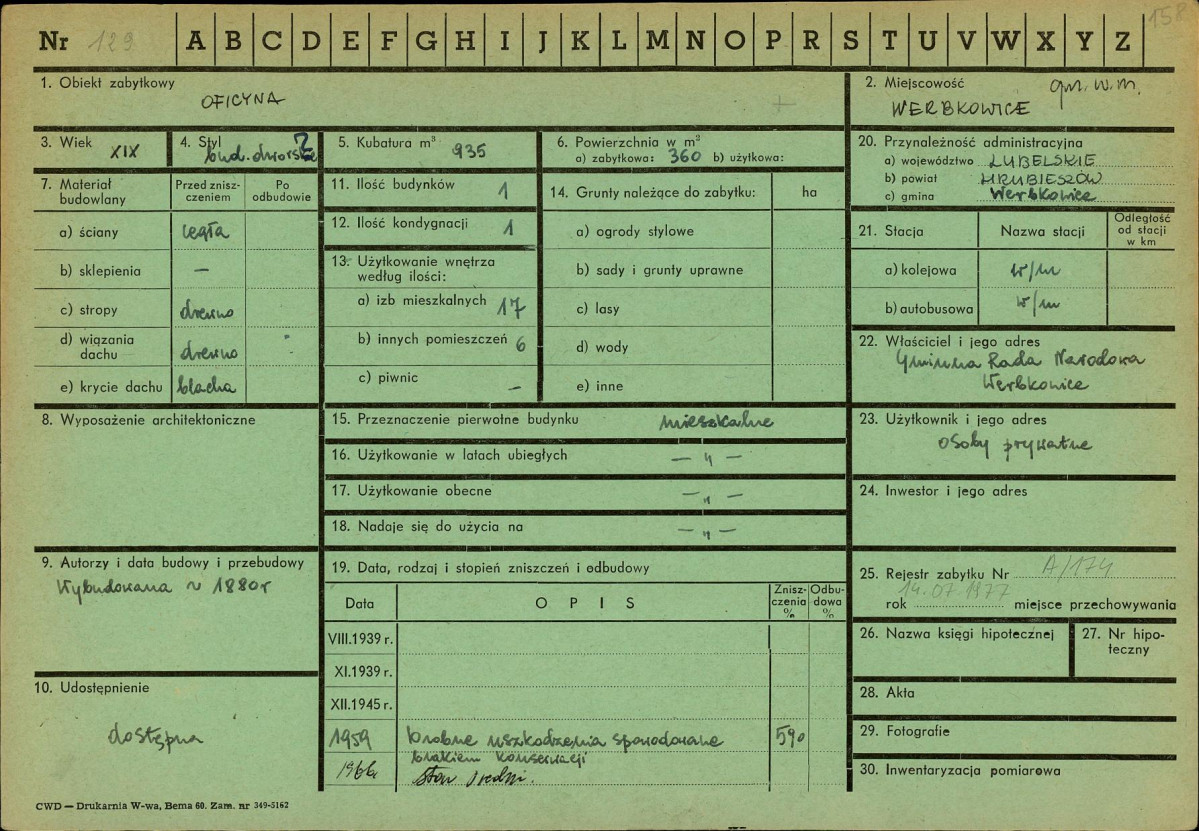 158
Nr 129 A B C D E F G H I J K L M N O P R S T U V W X Y Z
1. Obiekt zabytkowy
OFICYNA
2. Miejscowość gm. w.m.
WERBKOWICE
3. Wiek XIX
4. Styl ?
bud. dworskie
5. Kubatura m³ 935
6. Powierzchnia w m³
a) zabytkowa: 360 b) użytkowa:
20. Przynależność administracyjna
a) województwo LUBELSKIE
b) powiat HRUBIESZÓW
c) gmina Werbkowice
7. Materiał budowlany
Przed zniszczeniem
Po odbudowie
a) ściany cegła
b) sklepienia —
c) stropy drewno
d) wiązania dachu drewno
e) krycie dachu blacha
11. Ilość budynków 1
12. Ilość kondygnacji 1
13. Użytkowanie wnętrza
według ilości:
a) izb mieszkalnych 17
b) innych pomieszczeń 6
c) piwnic —
14. Grunty należące do zabytku: ha
a) ogrody stylowe
b) sady i grunty uprawne
c) lasy
d) wody
e) inne
21. Stacja
Nazwa stacji
Odległość
od stacji
w km
a) kolejowa w/m
b) autobusowa w/m
22. Właściciel i jego adres
Gminna Rada Narodowa
Werbkowice
8. Wyposażenie architektoniczne
15. Przeznaczenie pierwotne budynku mieszkalne
16. Użytkowanie w latach ubiegłych — „ —
17. Użytkowanie obecne — „ —
18. Nadaje się do użycia na — „ —
23. Użytkownik i jego adres
osoby prywatne
24. Inwestor i jego adres
9. Autorzy i data budowy i przebudowy
Wybudowana w 1880r
19. Data, rodzaj i stopień zniszczeń i odbudowy
Data
OPIS
Zniszczenia %
Odbudowa %
VIII.1939 r.
XI.1939 r.
XII.1945 r.
1959 Drobne uszkodzenia spowodowane 5%
brakiem konserwacji
1966 Stan średni.
25. Rejestr zabytku Nr A/174
14.07.1977
rok miejsce przechowywania
26. Nazwa księgi hipotecznej
27. Nr hipoteczny
10. Udostępnienie
dostępna
28. Akta
29. Fotografie
30. Inwentaryzacja pomiarowa
CWD — Drukarnia W-wa, Bema 60. Zam. nr 349-5162